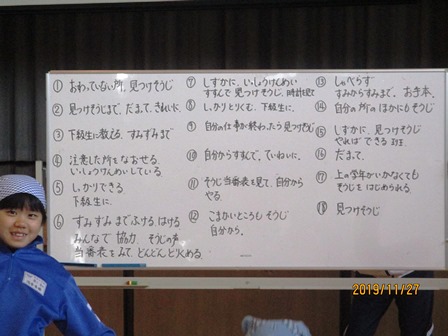 ① おわっていない所、見つけそうじ
② 見つけそうじまで、だまって、きれいに、
③ 下級生に教える、すみずみまで
④ 注意した所をなおせる
いっしょうけんめいしている
⑤ しっかりできる
下級生に、
⑥ すみずみまでふける、はける
みんなで 協力、そうじの声
当番表をみて、どんどんとりくめる
⑦ しずかに、いっしょうけんめい
すすんで見つけそうじ、時計見て
⑧ しっかりとりくむ、下級生に、
⑨ 自分の仕事が終わったら見つけそうじ
⑩ 自分からすすんで、ていねいに、
⑪ そうじ当番表を見て、自分から
やる
⑫ こまかいところも そうじ
自分から、
⑬ しゃべらず
すみからすみまで、お手本、
⑭ 自分の所のほかにもそうじ
⑮ しずかに、見つけそうじ
やればできる班
⑯ だまって、
⑰ 上の学年がいなくても
そうじをはじめられる
⑱ 見つけそうじ
2019/11/27